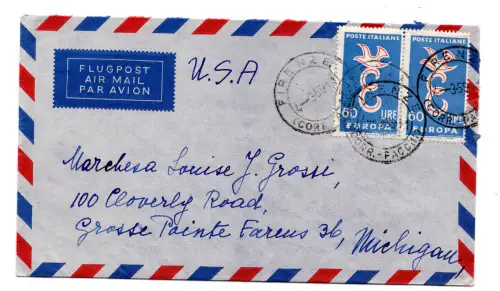 FLUGPOST
AIR MAIL
PAR AVION
U.S.A
FIRENZE
(CORR.
POSTE ITALIANE
60 LIRE
EUROPA
POSTE ITALIANE
60
EUROPA
FIRENZE
(CORR.-PACCHI
FIRENZE
(CORR.-PA
Marchesa Louise J. Grossi,
100 Cloverly Road,
Grosse Pointe Farms 36, Michigan,